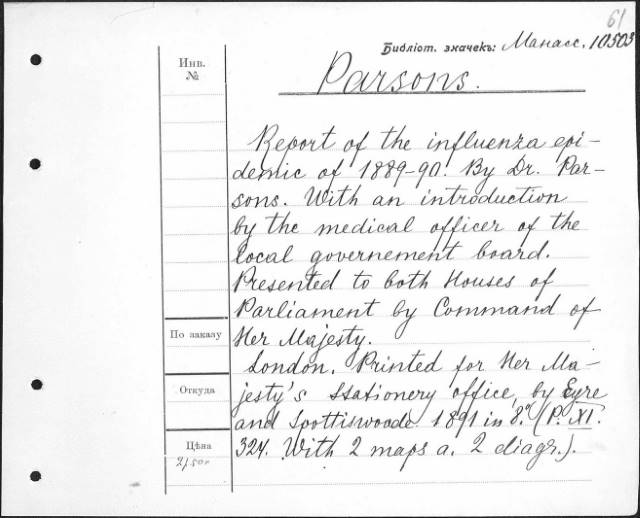 61
Библіот. значекъ: Манасс. 10503
Инв.
№
Parsons.
Report of the influenza epi-
demic of 1889-90. By Dr. Par-
sons. With an introduction
by the medical officer of the
local governement board.
Presented to both Houses of
Parliament by Command of
Her Majesty.
По заказу
London. Printed for Her Ma-
jesty's Stationery office, by Eyre
Откуда
and Spottiswoode. 1891 in 8.° (P. XI.
324. With 2 maps a. 2 diagr.).
Цѣна